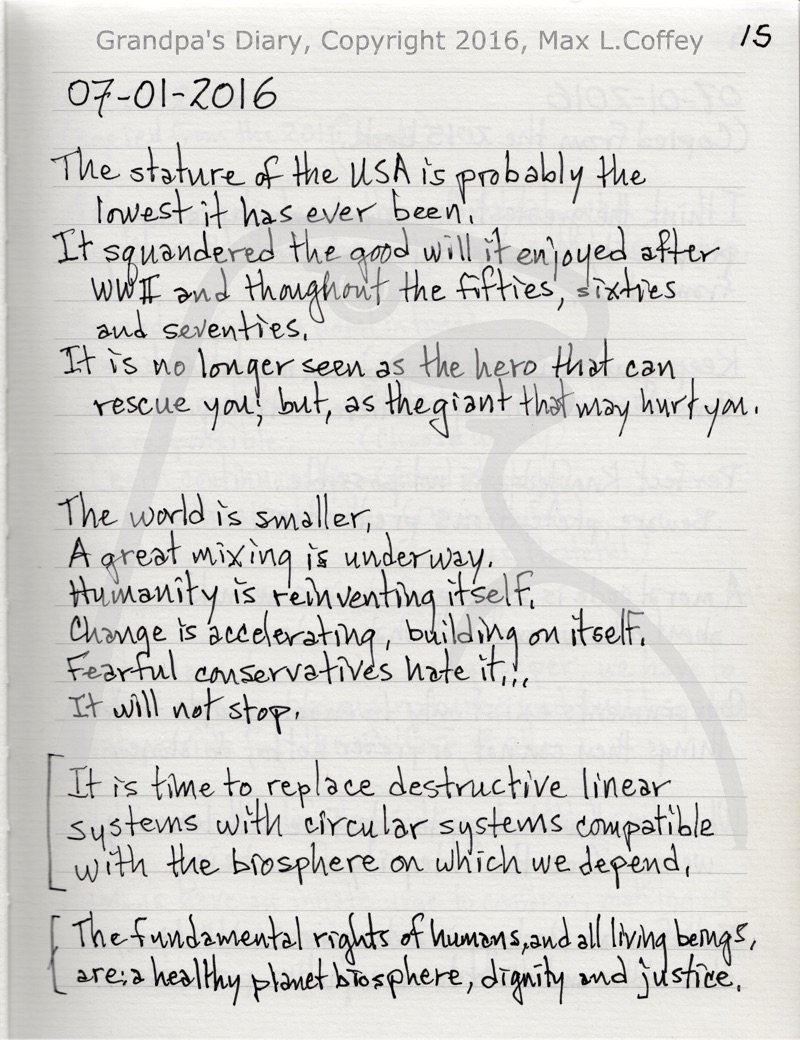 Grandpa's Diary, Copyright 2016, Max L.Coffey 15
07-01-2016
The stature of the USA is probably the
lowest it has ever been.
It squandered the good will it enjoyed after
WWII and thoughout the fifties, sixties
and seventies.
It is no longer seen as the hero that can
rescue you; but, as the giant that may hurt you.
The world is smaller,
A great mixing is underway.
Humanity is reinventing itself.
Change is accelerating, building on itself.
Fearful conservatives hate it...
It will not stop.
It is time to replace destructive linear
systems with circular systems compatible
with the biosphere on which we depend.
The fundamental rights of humans, and all living beings,
are: a healthy planet biosphere, dignity and justice.